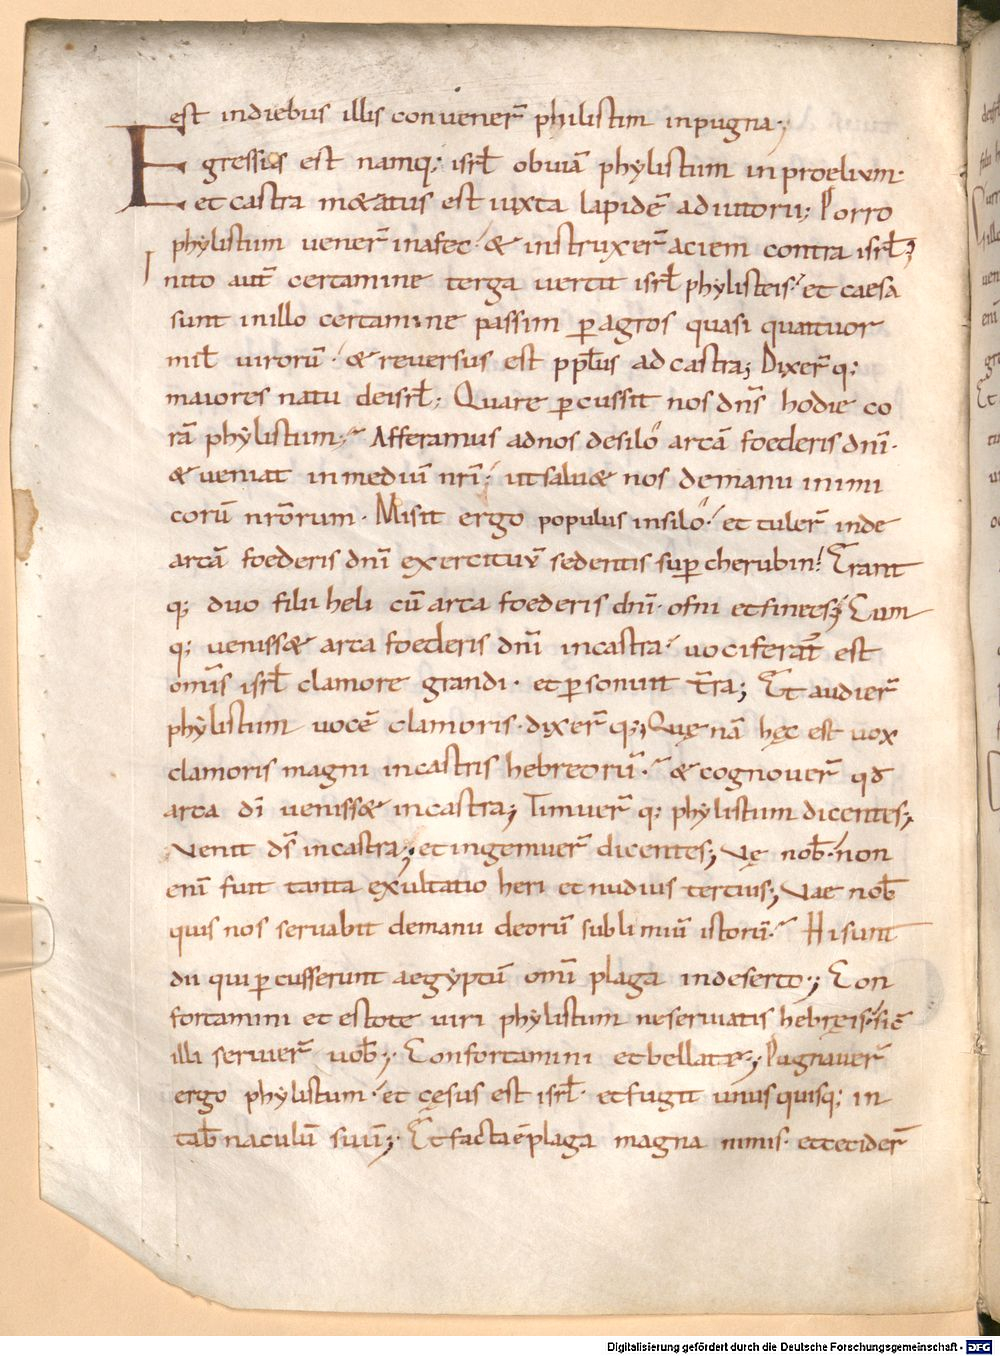 est indiebus illis convener̄ philistim inpugna;
Egressus est namq; isrł obuiā phylistiim inproelium·
et castra mætatus est iuxta lapidē adiutorii; Porro
phylistiim uener̄ inafec· & instruxer̄ aciem contra isrł;
Inito aut̄ certamine terga uertit isrł phylisteis· et caesa
sunt inillo certamine passim ꝑ agros quasi quattuor
mił uirorū· & reuersus est ppłus ad castra; Dixer̄q;
maiores natu deisrł; Quare ꝑcussit nos dn̄s hodie co
rā phylistiim· Afferamus adnos desilo arcā foederis dn̄i·
& ueniat inmediū nr̄i· utsalu& nos demanu inimi
corū nr̄orum· Misit ergo populus insilo· et tuler̄ inde
arcā foederis dn̄i exercituū sedentis suꝑ cherubin· Erant
q; duo filii heli cū arca foederis dn̄i· ofni etfinees; Cum
q; ueniss& arca foederis dn̄i incastra· uociferat̄ est
om̄is isrł clamore grandi· et ꝑsonuit t̄ra; Et audier̄
phylistiim uocē clamoris· dixer̄q; Quę nā hęc est uox
clamoris magni incastris hebreorū· & cognouer̄ qđ
arca dī ueniss& incastra; Timuer̄q; phylistiim dicentes;
Venit dს incastra; et ingemuer̄ dicentes; Vę nob· non
enī fuit tanta exultatio heri et nudius tertius; Vae nob̄
quis nos seruabit demanu deorū sublimiū istorū· Hi sunt
dii qui ꝑcusserunt aegyptū om̄i plaga indeserto; Con
fortamini et estote uiri phylistiim neseruiatis hebręis· sic̄
illi seruier̄ uob̄; Confortamini et bellate; Pugnauer̄
ergo phylistiim· et cęsus est isrł· et fugit unusquisq; in
tab̄naculū suū; Et facta ē plaga magna nimis· etceciđer̄
Digitalisierung gefördert durch die Deutsche Forschungsgemeinschaft - DFG